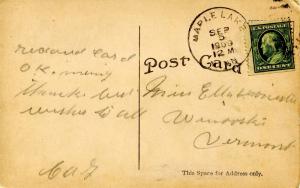 MAPLE LAKE
SEP
5
1909
12 M
U.S. POSTAGE
ONE CENT
Post Card
recd and card
O.K. many
thanks best
wishes to all
Miss Ella
Winooski
Vermont
This Space for Address only.